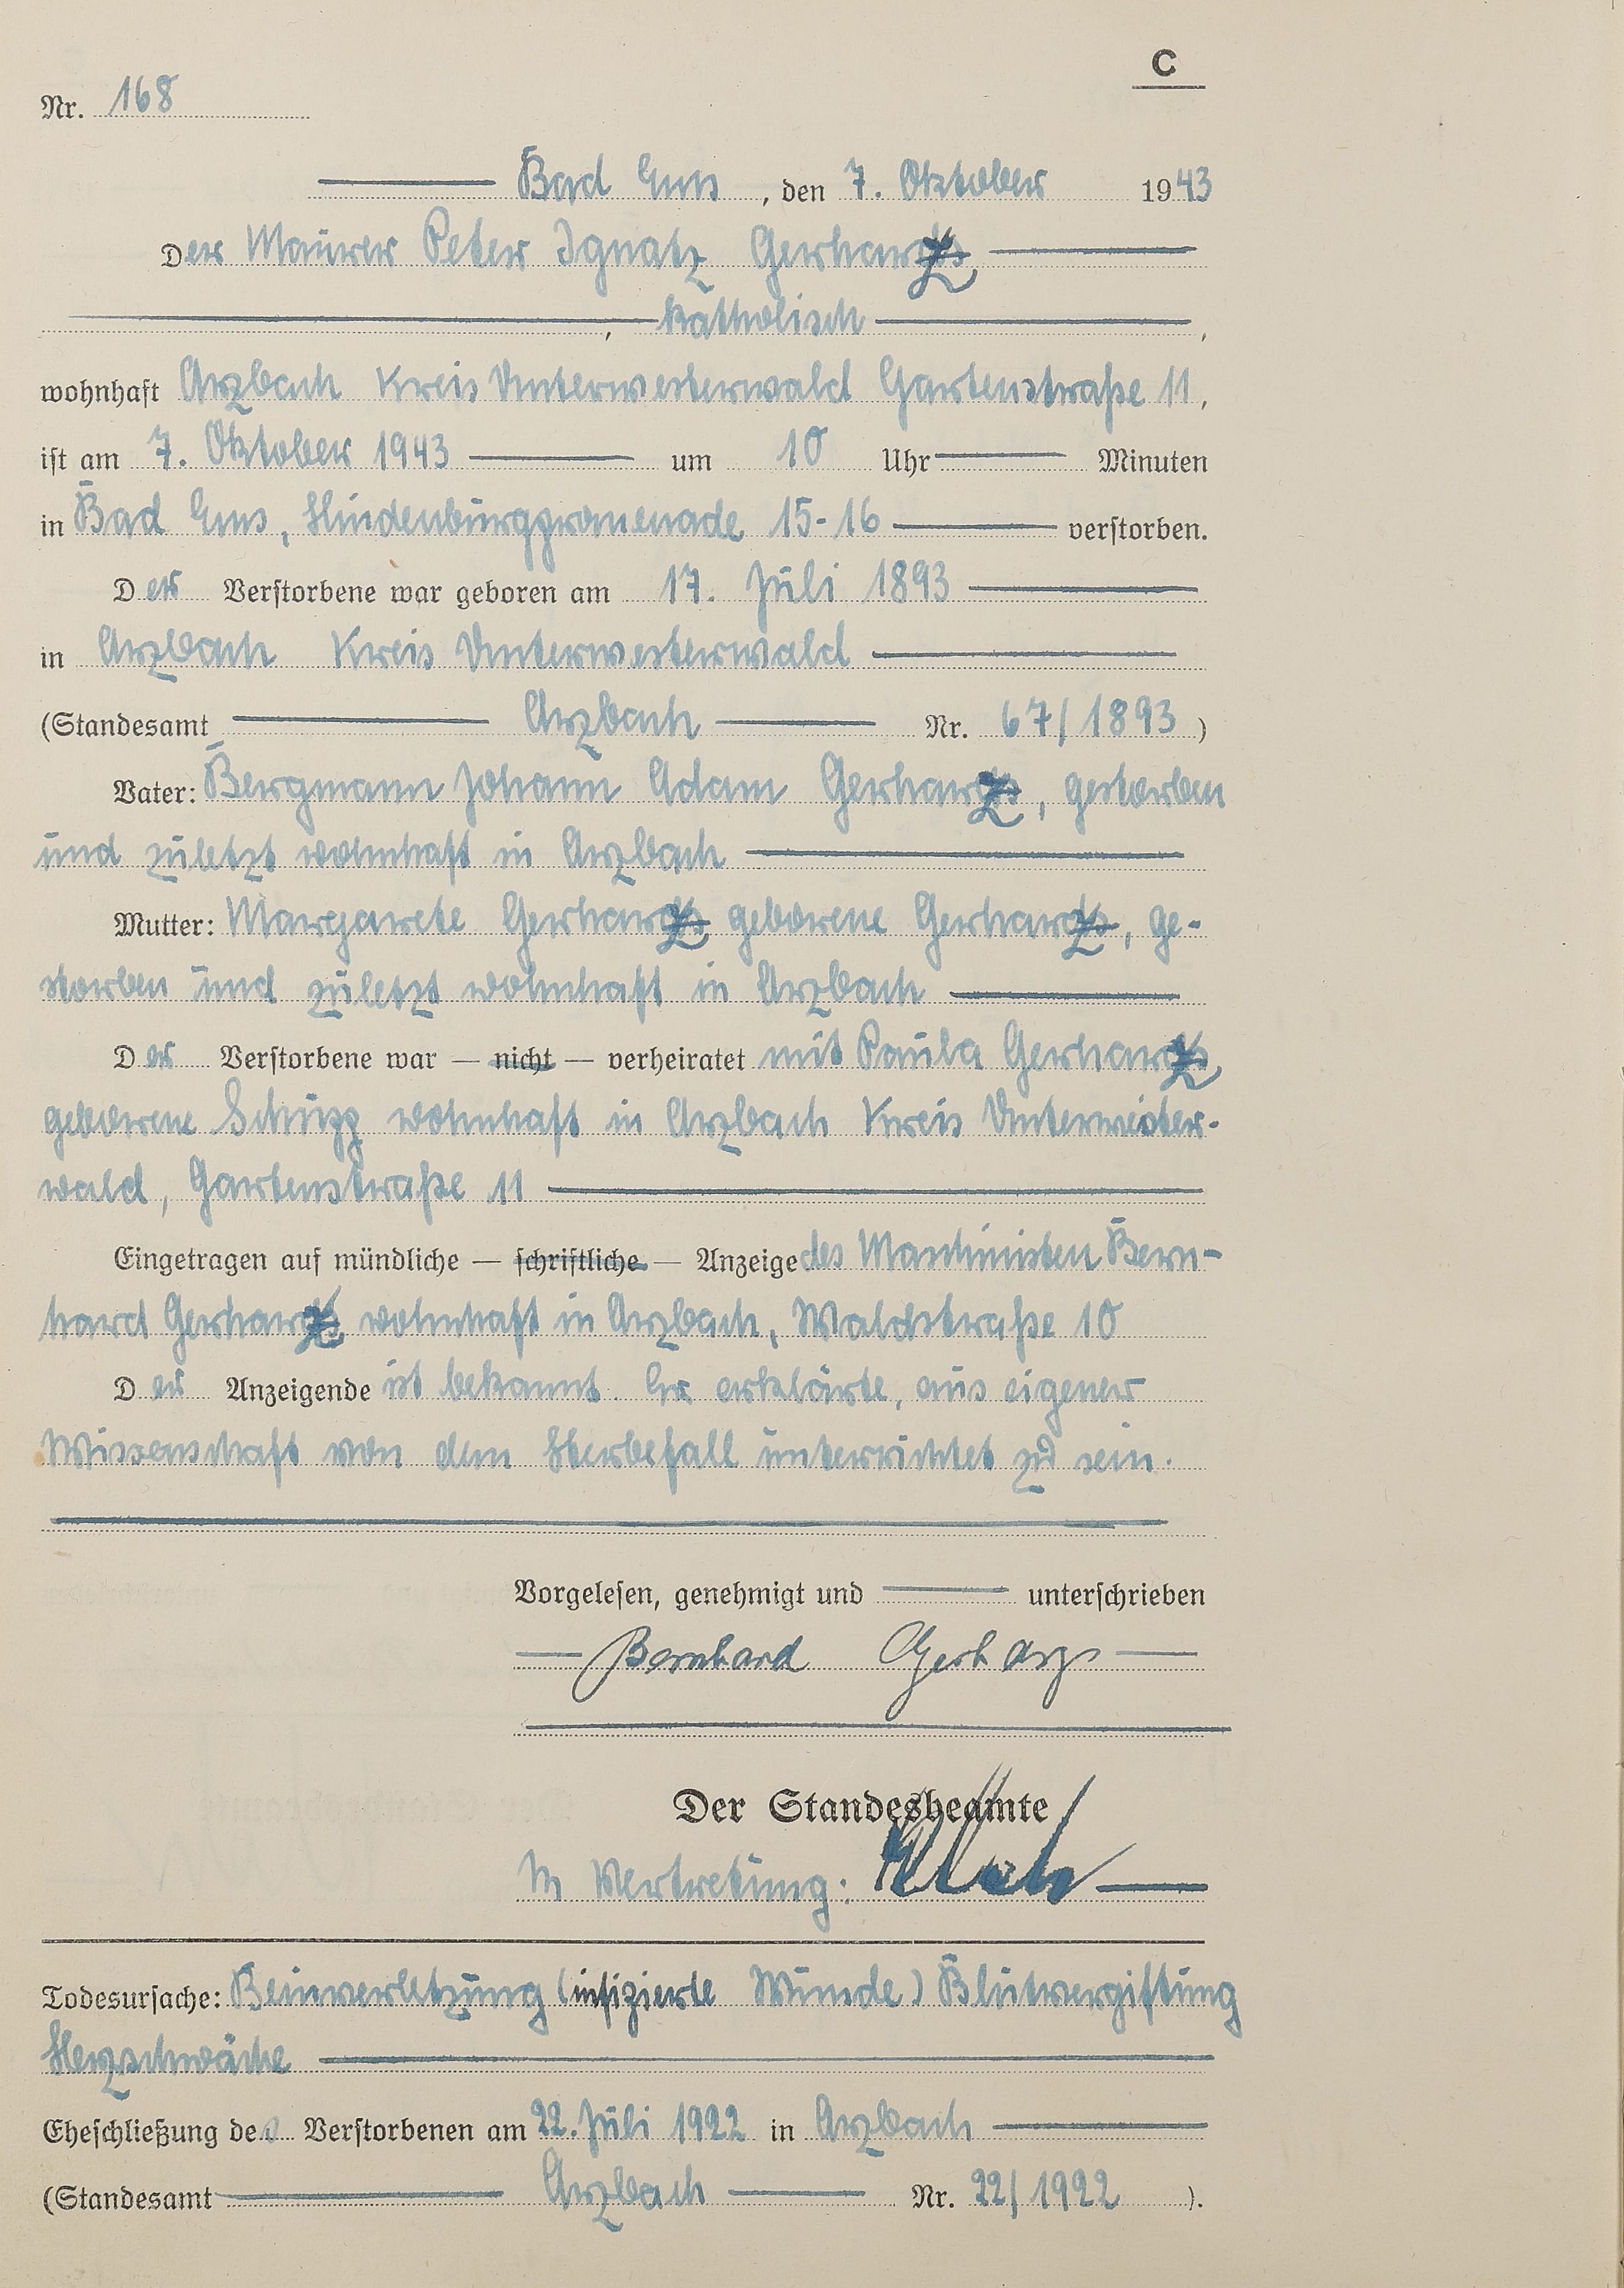 C
Nr. 168
Bad Ems, den 7. Oktober 1943
Der Maurer Peter Ignatz Gerharz
, katholisch ,
wohnhaft Arzbach Kreis Unterwesterwald Gartenstraße 11,
ist am 7. Oktober 1943 um 10 Uhr Minuten
in Bad Ems, Hindenburgpromenade 15-16 verstorben.
Der Verstorbene war geboren am 17. Juli 1893
in Arzbach Kreis Unterwesterwald
(Standesamt Arzbach Nr. 67/1893)
Vater: Bergmann Johann Adam Gerharz, gestorben
und zuletzt wohnhaft in Arzbach
Mutter: Margarete Gerharz geborene Gerharz, ge-
storben und zuletzt wohnhaft in Arzbach
Der Verstorbene war — nicht — verheiratet mit Paula Gerharz
geborene Schupp wohnhaft in Arzbach Kreis Unterwester-
wald, Gartenstraße 11
Eingetragen auf mündliche — schriftliche — Anzeige des Maschinisten Bern-
hard Gerharz wohnhaft in Arzbach, Waldstraße 10
Der Anzeigende ist bekannt. Er erklärte, aus eigener
Wissenschaft von dem Sterbefall unterrichtet zu sein.
Vorgelesen, genehmigt und unterschrieben
Bernhard Gerharz
Der Standesbeamte
In Vertretung:
Todesursache: Beinverletzung (infizierte Wunde) Blutvergiftung
Herzschwäche
Eheschließung des Verstorbenen am 22. Juli 1922 in Arzbach
(Standesamt Arzbach Nr. 22/1922).